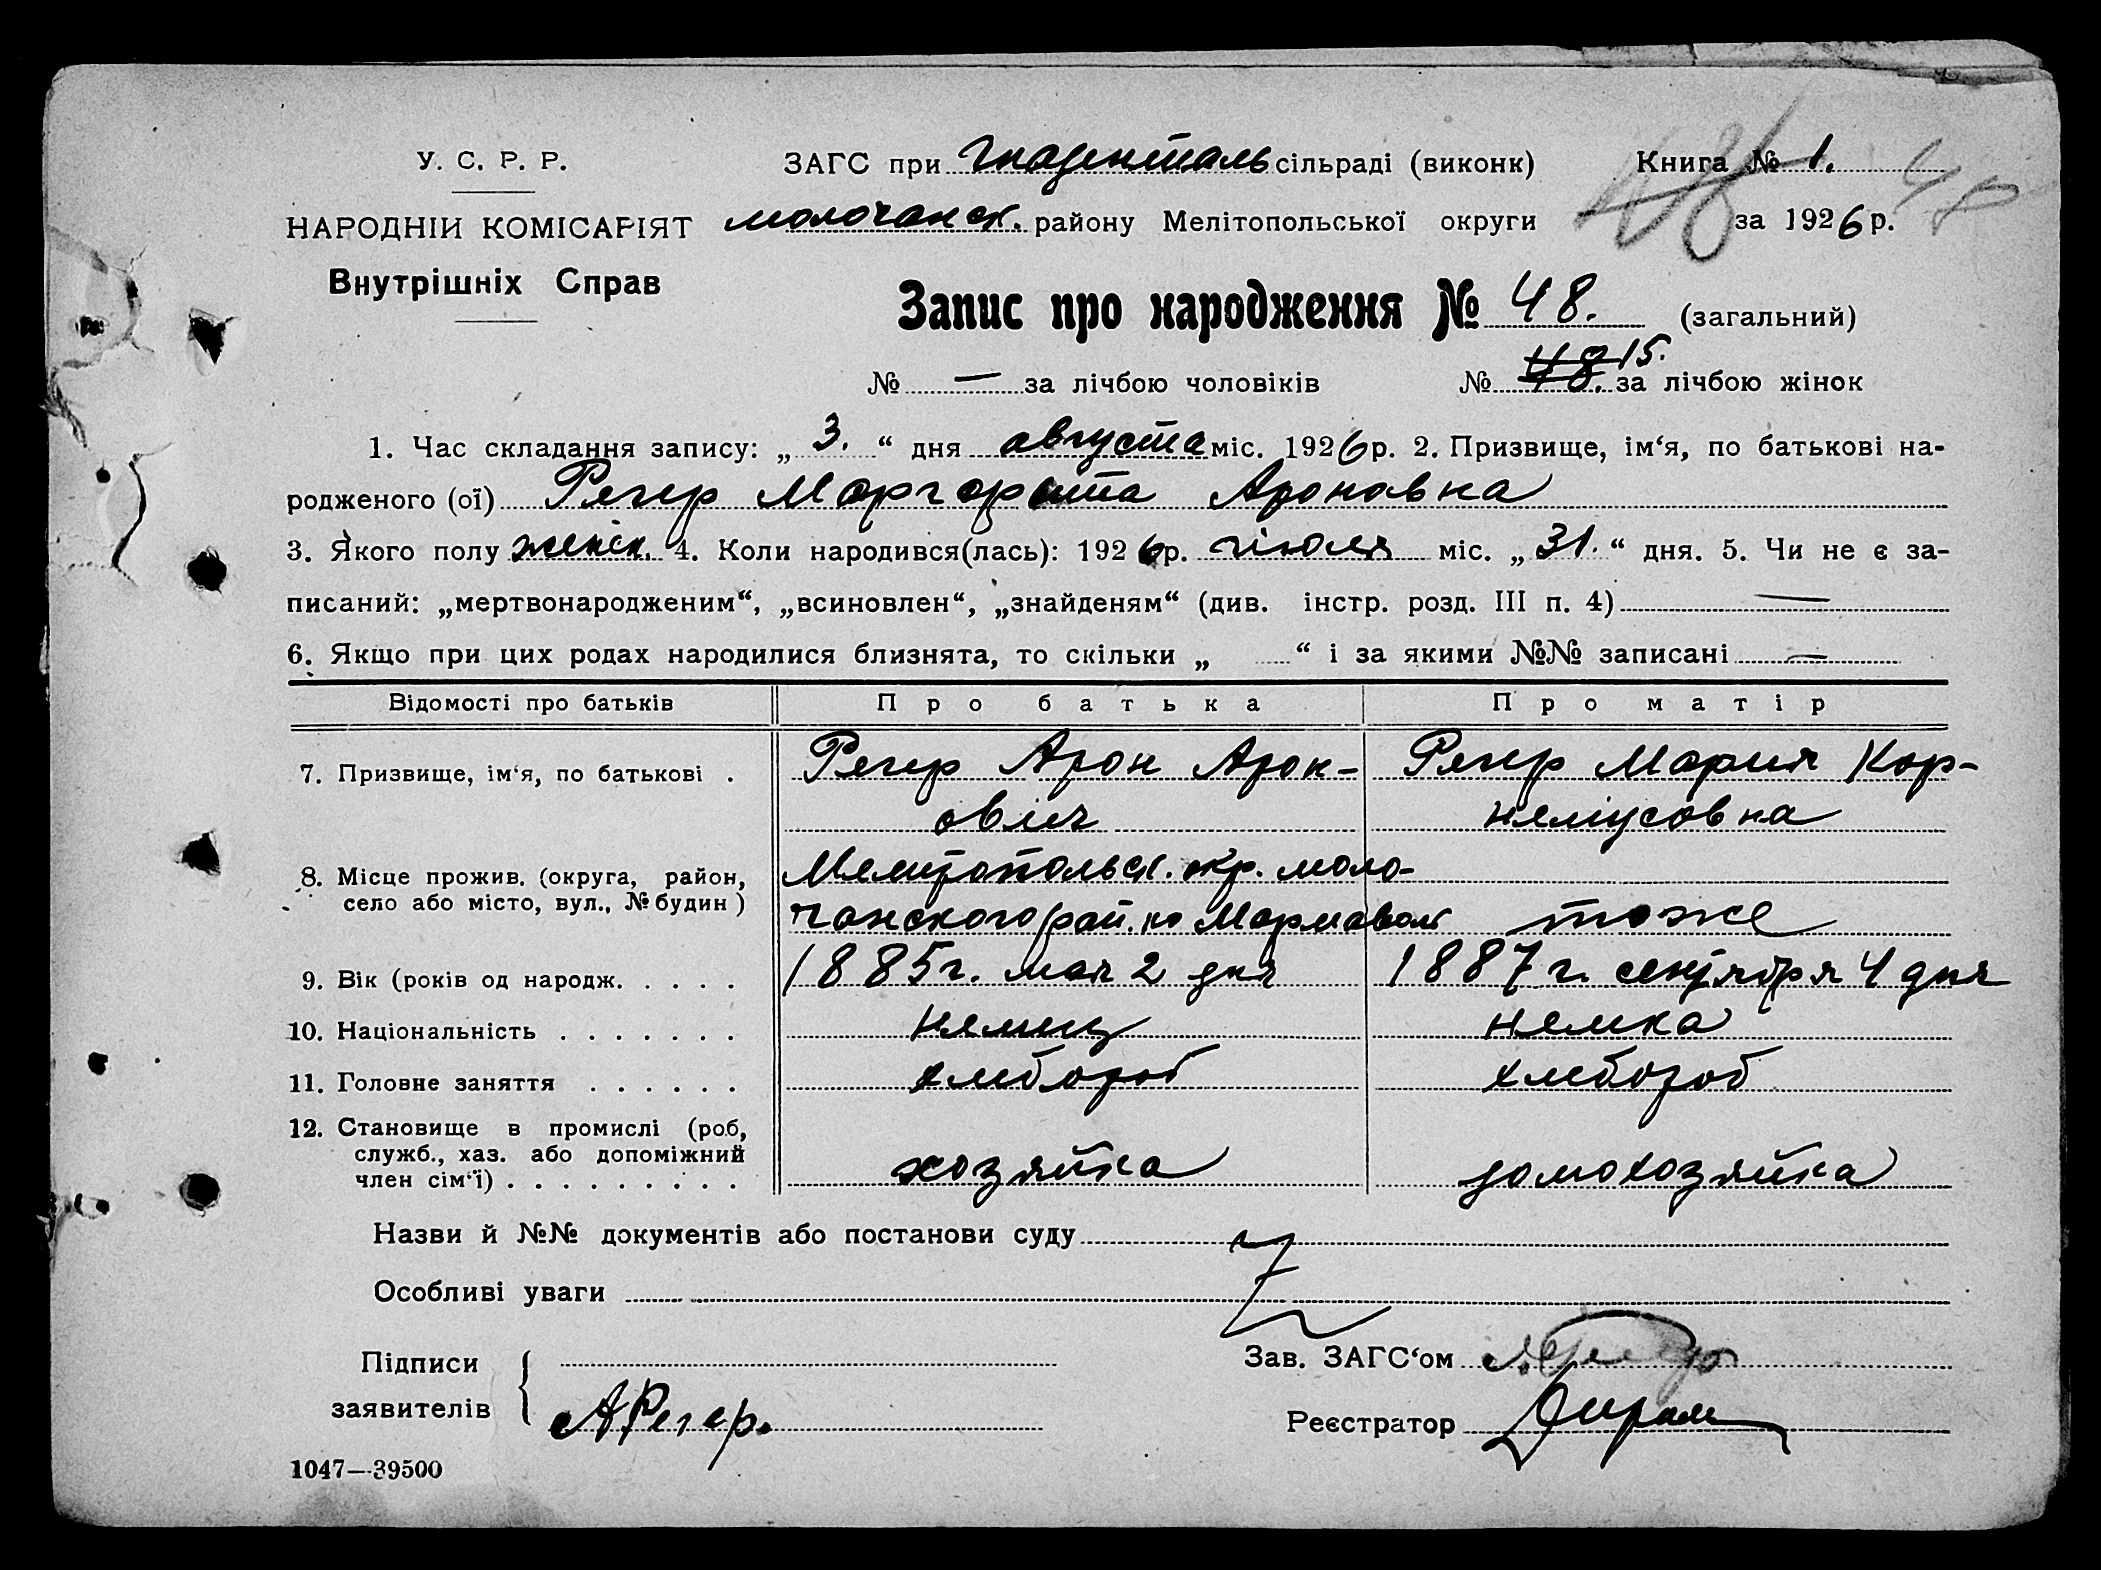 У. С. Р. Р. ЗАГС при Гнаденталь сільраді (виконк) Книга № 1.
НАРОДНІЙ КОМІСАРІЯТ молочанск. району Мелітопольської округи за 1926 р.
48
48
Внутрішніх Справ
Запис про народження № 48. (загальний)
№ — за лічбою чоловіків № 48. 15. за лічбою жінок
1. Час складання запису: „ 3. “ дня августа міс. 1926 р. 2. Призвище, ім‘я, по батькові на-
родженого (ої) Регер Маргарита Ароновна
3. Якого полу женск. 4. Коли народився(лась): 1926 р. июля міс. „ 31. “ дня. 5. Чи не є за-
писаний: „мертвонародженим“, „всиновлен“, „знайденям“ (див. інстр. розд. III п. 4) —
6. Якщо при цих родах народилися близнята, то скільки „ “ і за якими №№ записані —
Відомості про батьків Про батька Про матір
7. Призвище, ім‘я, по батькові . Регер Арон Арон- Регер Мария Кор-
ович нелиусовна
8. Місце прожив. (округа, район, Мелитопольск. окр. моло-
село або місто, вул., № будин) чанского рай. тоже
9. Вік (років од народж. . . . . 1885 г. мая 2 дня 1887 г. сентября 4 дня
10. Національність . . . . . . . немец немка
11. Головне заняття . . . . . . хлебороб хлебороб
12. Становище в промислі (роб,
служб., хаз. або допоміжний
член сім‘ї) . . . . . . . . . хозяйка домохозяйка
Назви й №№ документів або постанови суду
Особливі уваги
Підписи Зав. ЗАГС‘ом
заявителів А Регер. Реєстратор
1047—39500